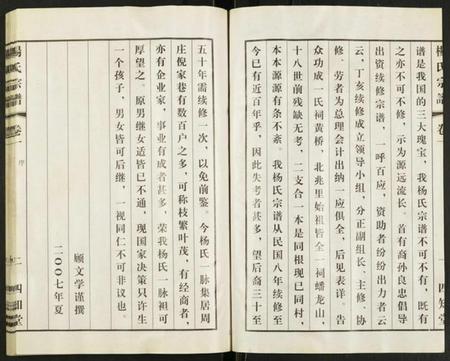 楊氏宗譜
卷一
四知堂
譜是我国的三大瑰宝，我杨氏宗谱不可不有，既有
之亦不可不修，示为源远流长。首有裔孙良忠倡导
出资续修宗谱，一呼百应，资助者纷纷出力者云
云，丁亥续修成立领导小组，分正副组长、主修、协
修、劳者为总理会计出纳一应俱全，后见表详。告
众功成一氏祠黄桥，北兆里始祖皆全一祠蟠龙山，
十八世前残缺无考，二支合一本是同根现已同村，
本本源源有条不紊。我杨氏宗谱从民国八年续修至
今已有近百年乎，因此失考者甚多，望后裔三十至
五十年需续修一次，以免前鉴。今杨氏一脉集居周
庄倪家巷有数百户之多，可称枝繁叶茂，有经商者，
亦有企业家，事业有成者甚多，荣我杨氏一脉祖可
厚望之。原男继女适皆已不通，现国家决策只许生
一个孩子，男女皆可后继，一视同仁不可非议也。
顾文学谨撰
二〇〇七年夏
楊氏宗譜
卷一
序
四知堂